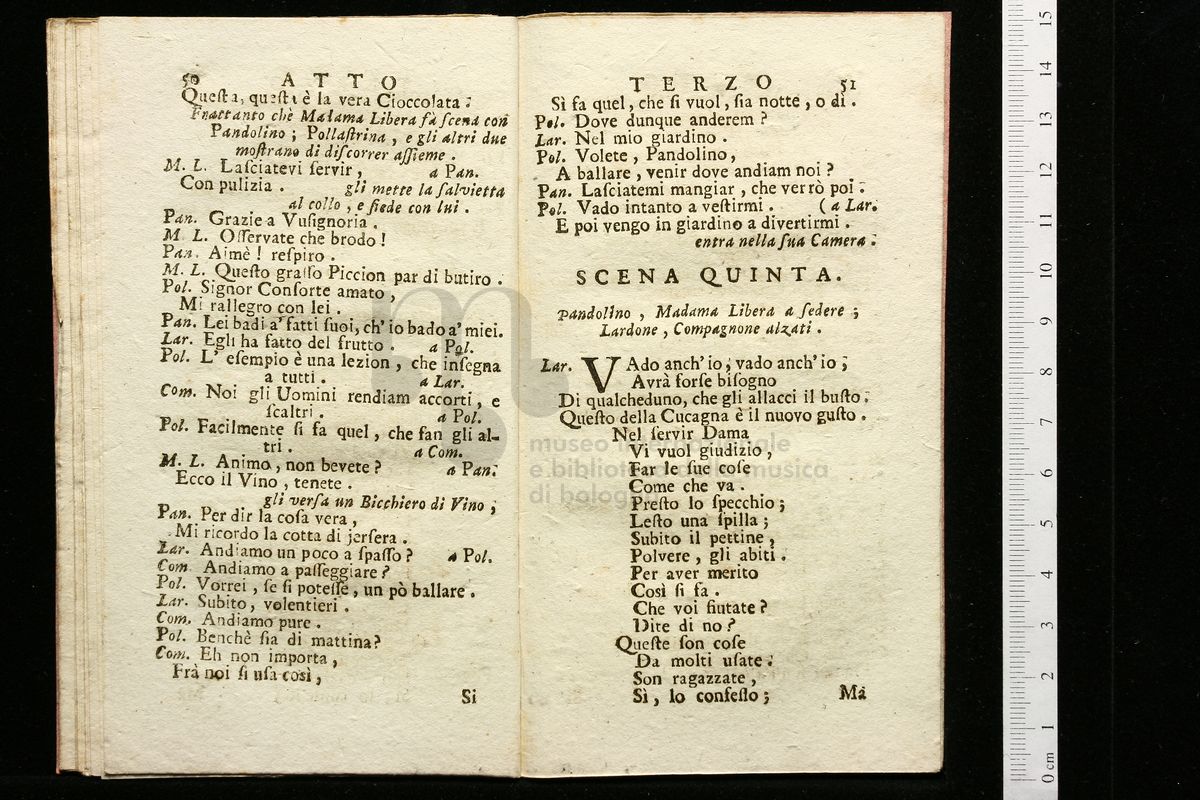 50 ATTO
Questa, questa è la vera Cioccolata:
Frattanto chè Madama Libera fà scena con
Pandolino; Pollastrina, e gli altri due
mostrano di discorrer assieme.
M. L. Lasciatevi servir, a Pan.
Con pulizia. gli mette la salvietta
al collo, e siede con lui.
Pan. Grazie a Vusignoria.
M. L. Osservate che brodo!
Pan. Aimè! respiro.
M. L. Questo grasso Piccion par di butiro.
Pol. Signor Consorte amato,
Mi rallegro con lei.
Pan. Lei badi a' fatti suoi, ch' io bado a' miei.
Lar. Egli ha fatto del frutto. a Pol.
Pol. L' esempio è una lezion, che insegna
a tutti. a Lar.
Com. Noi gli Uomini rendiam accorti, e
scaltri. a Pol.
Pol. Facilmente si fa quel, che fan gli al-
tri. a Com.
M. L. Animo, non bevete? a Pan:
Ecco il Vino, tenete.
gli versa un Bicchiero di Vino;
Pan. Per dir la cosa vera,
Mi ricordo la cotta di jersera.
Lar. Andiamo un poco a spasso? a Pol.
Com. Andiamo a passeggiare?
Pol. Vorrei, se si potesse, un pò ballare.
Lar. Subito, volentieri.
Com. Andiamo pure.
Pol. Benchè sia di mattina?
Com. Eh non importa,
Frà noi si usa così,
Si
TERZO 51
Sì fa quel, che si vuol, sia notte, o dì.
Pol. Dove dunque anderem?
Lar. Nel mio giardino.
Pol. Volete, Pandolino,
A ballare, venir dove andiam noi?
Pan. Lasciatemi mangiar, che verrò poi:
Pol. Vado intanto a vestirmi. (a Lar.
E poi vengo in giardino a divertirmi.
entra nella sua Camera:
SCENA QUINTA.
Pandolino, Madama Libera a sedere;
Lardone, Compagnone alzati.
Lar. VAdo anch' io, vado anch' io;
Avrà forse bisogno
Di qualcheduno, che gli allacci il busto:
Questo della Cucagna è il nuovo gusto.
Nel servir Dama
Vi vuol giudizio,
Far le sue cose
Come che va.
Presto lo specchio;
Lesto una spilla;
Subito il pettine,
Polvere, gli abiti.
Per aver merito
Così si fa.
Che voi fiutate?
Dite di no?
Queste son cose
Da molti usate:
Son ragazzate,
Sì, lo confesso;
Ma
museo internazionale
e biblioteca della musica
di bologna
0 cm 1 2 3 4 5 6 7 8 9 10 11 12 13 14 15